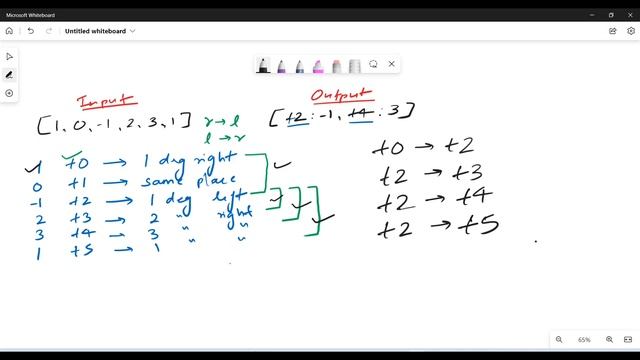 Microsoft Whiteboard
Untitled whiteboard
Input
Output
[1, 0, -1, 2, 3, 1] r→l
l→r
[t2 : -1, t4 : 3]
1 t0 → 1 deg right
0 t1 → same place
-1 t2 → 1 deg left
2 t3 → 2 " right
3 t4 → 3 " "
1 t5 → 1 " "
t0 → t2
t2 → t3
t2 → t4
t2 → t5
65%